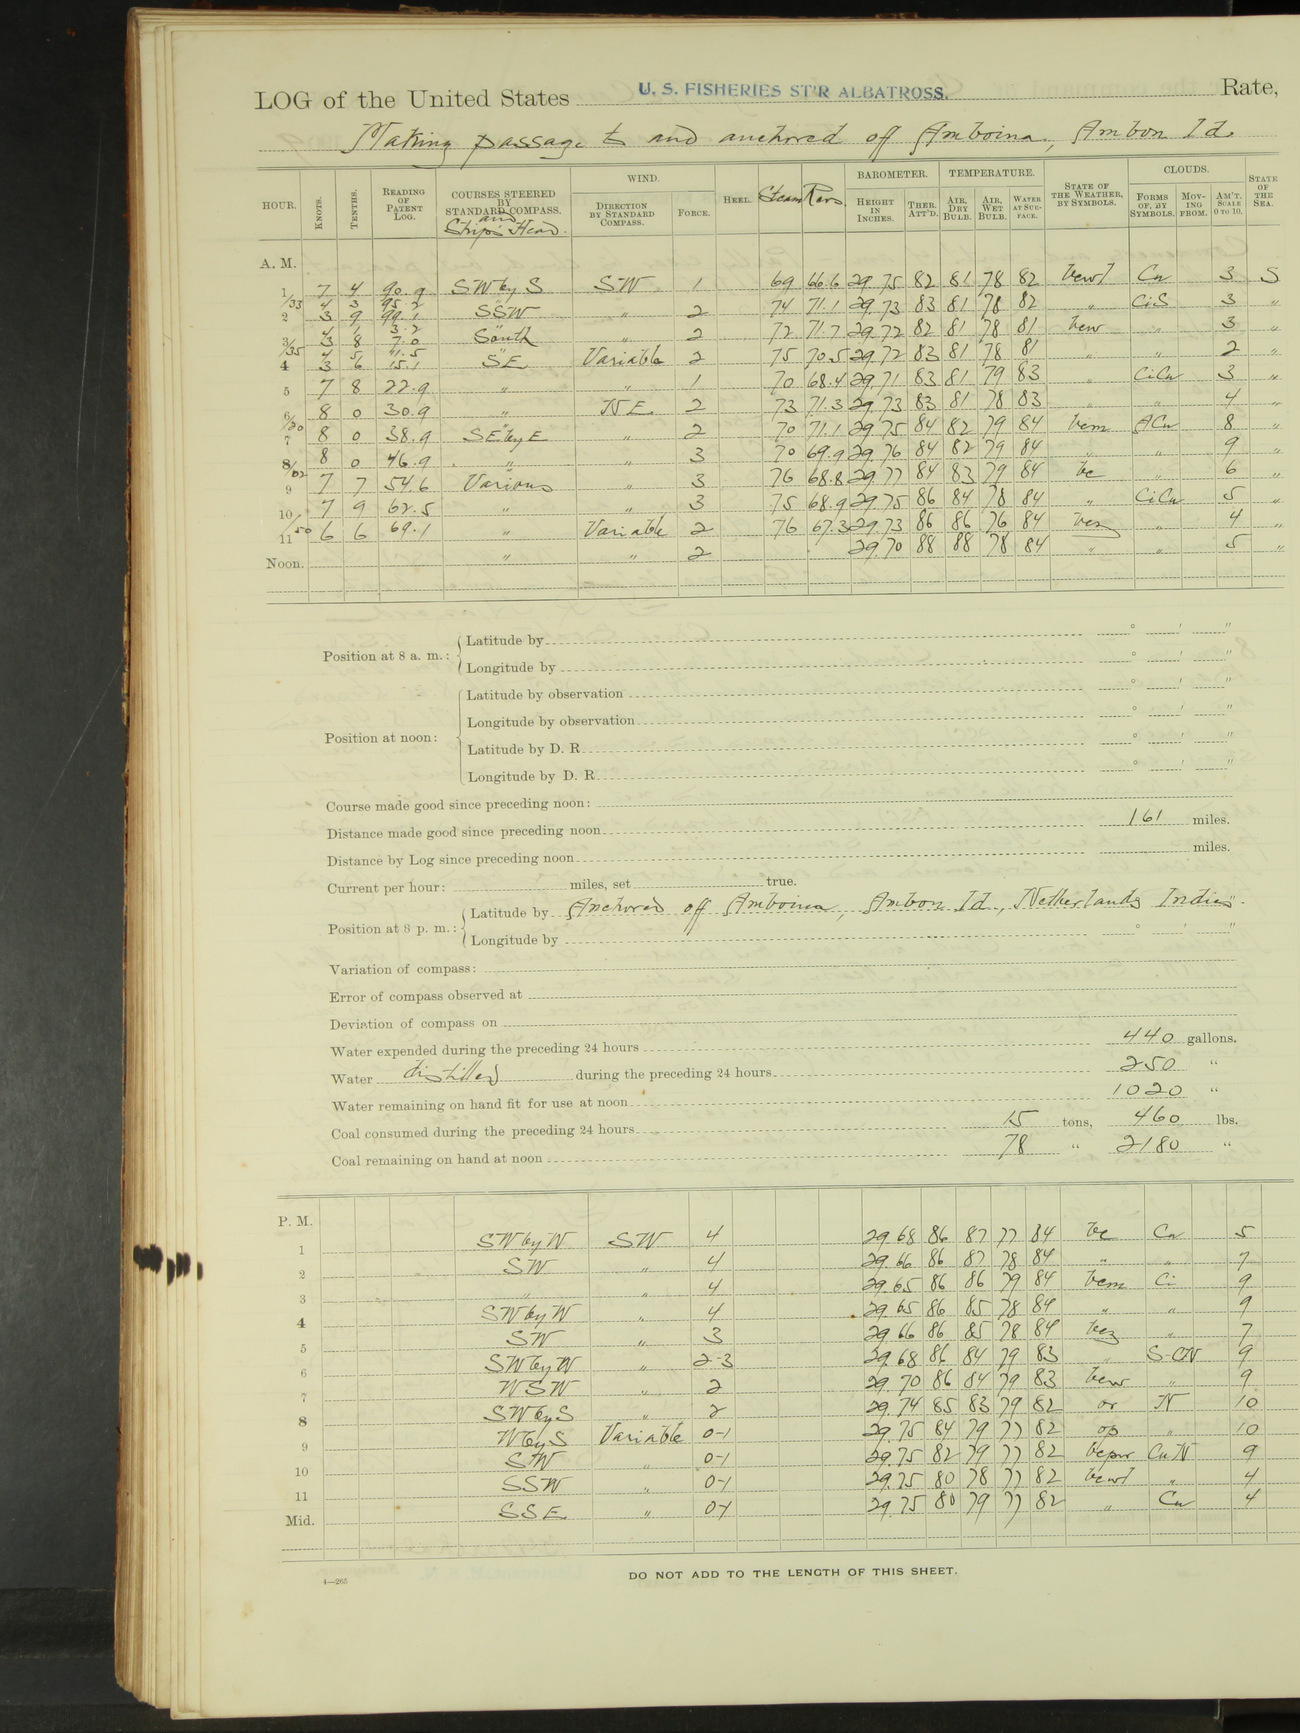 LOG of the United States U. S. FISHERIES ST'R ALBATROSS. Rate,
Making passage to and anchored off Amboina, Ambon Id.
HOUR. KNOTS. TENTHS. READING OF PATENT LOG. COURSES STEERED BY STANDARD COMPASS. and Ship's Head. WIND. DIRECTION BY STANDARD COMPASS. FORCE. HEEL. Steam Revs. BAROMETER. HEIGHT IN INCHES. THER. ATT'D. TEMPERATURE. AIR, DRY BULB. AIR, WET BULB. WATER AT SURFACE. STATE OF THE WEATHER, BY SYMBOLS. CLOUDS. FORMS OF, BY SYMBOLS. MOVING FROM. AM'T. SCALE 0 TO 10. STATE OF THE SEA.
A. M.
1 7 4 90.9 SW by S SW 1 69 66.6 29.75 82 81 78 82 bcwl Cu 3 S
1/33 4 3 95.2
2 3 9 99.1 SSW " 2 74 71.1 29.73 83 81 78 82 " CiS 3 "
4 1 3.2
3 3 8 7.0 South " 2 72 71.7 29.72 82 81 78 81 bcw " 3 "
/35 4 5 11.5
4 3 6 15.1 SE Variable 2 75 70.5 29.72 83 81 78 81 " " 2 "
5 7 8 22.9 " " 1 70 68.4 29.71 83 81 79 83 " CiCu 3 "
6 8 0 30.9 " NE 2 73 71.3 29.73 83 81 78 83 " " 4 "
/20
7 8 0 38.9 SE by E " 2 70 71.1 29.75 84 82 79 84 bcm ACu 8 "
8/02 8 0 46.9 " " 3 70 69.9 29.76 84 82 79 84 " " 9 "
9 7 7 54.6 Various " 3 76 68.8 29.77 84 83 79 84 bc " 6 "
10 7 9 62.5 " " 3 75 68.9 29.75 86 84 78 84 " CiCu 5 "
11/50 6 6 69.1 " Variable 2 76 67.3 29.73 86 86 76 84 bcz " 4 "
Noon. " " 2 29.70 88 88 78 84 " " 5 "
Position at 8 a. m.: Latitude by ° ' "
Longitude by ° ' "
Position at noon: Latitude by observation ° ' "
Longitude by observation ° ' "
Latitude by D. R. ° ' "
Longitude by D. R. ° ' "
Course made good since preceding noon:
Distance made good since preceding noon 161 miles.
Distance by Log since preceding noon miles.
Current per hour: miles, set true.
Position at 8 p. m.: Latitude by Anchored off Amboina, Ambon Id., Netherlands Indies.
Longitude by ° ' "
Variation of compass:
Error of compass observed at
Deviation of compass on
Water expended during the preceding 24 hours 440 gallons.
Water distilled during the preceding 24 hours 250 "
Water remaining on hand fit for use at noon 1020 "
Coal consumed during the preceding 24 hours 15 tons, 460 lbs.
Coal remaining on hand at noon 78 " 2180 "
P. M.
1 SW by W SW 4 29.68 86 87 77 84 bc Cu 5
2 SW " 4 29.66 86 87 78 84 " " 7
3 " " 4 29.65 86 86 79 84 bcm Ci 9
4 SW by W " 4 29.65 86 85 78 84 " " 9
5 SW " 3 29.66 86 85 78 84 bcz " 7
6 SW by W " 2-3 29.68 86 84 79 83 " S-CN 9
7 WSW " 2 29.70 86 84 79 83 bcw " 9
8 SW by S " 2 29.74 85 83 79 82 or N 10
9 W by S Variable 0-1 29.75 84 79 77 82 op " 10
10 SW " 0-1 29.75 82 79 77 82 bcpw CuN 9
11 SSW " 0-1 29.75 80 78 77 82 bcwl " 4
Mid. SSE " 0-1 29.75 80 79 77 82 " Cu 4
4—265
DO NOT ADD TO THE LENGTH OF THIS SHEET.